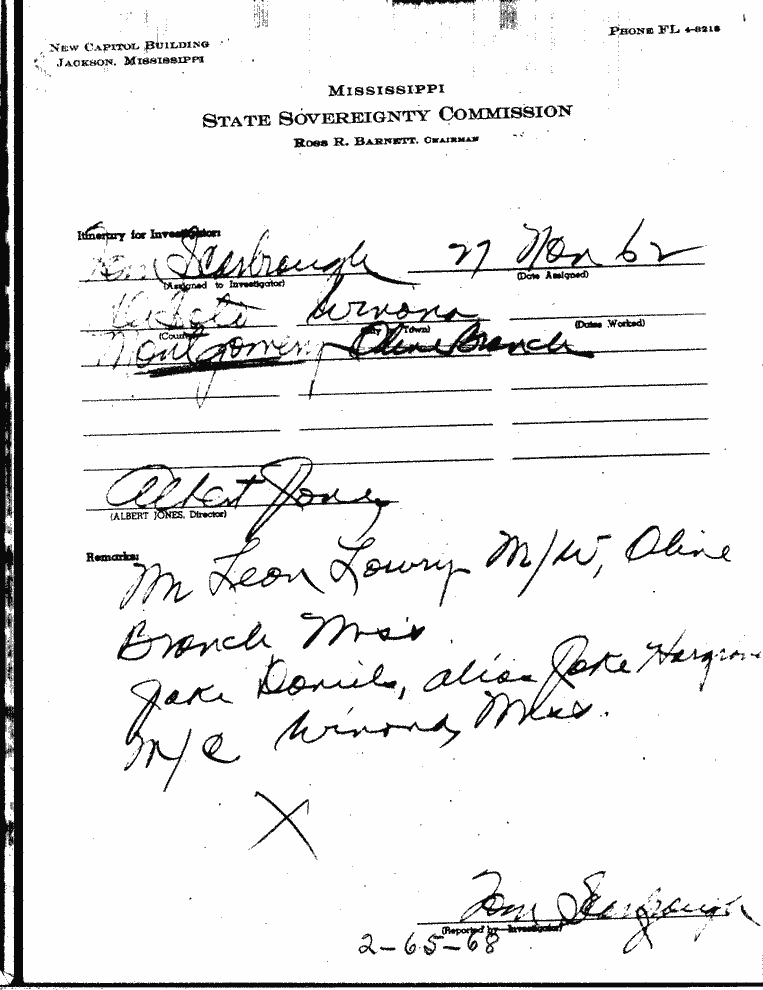 NEW CAPITOL BUILDING
JACKSON, MISSISSIPPI
PHONE FL 4-8218
MISSISSIPPI
STATE SOVEREIGNTY COMMISSION
ROSS R. BARNETT, CHAIRMAN
Itinerary for Investigator:
Tom Scarbrough 27 Nov 62
(Assigned to Investigator) (Date Assigned)
DeSoto Winona
(County) (Town) (Dates Worked)
Montgomery Olive Branch
Albert Jones
(ALBERT JONES, Director)
Remarks:
Mr Leon Lowry M/W, Olive
Branch Miss.
Jake Daniels, alias Jake Hargrove
M/C Winona, Miss.
X
Tom Scarbrough
(Reported by Investigator)
2-65-68